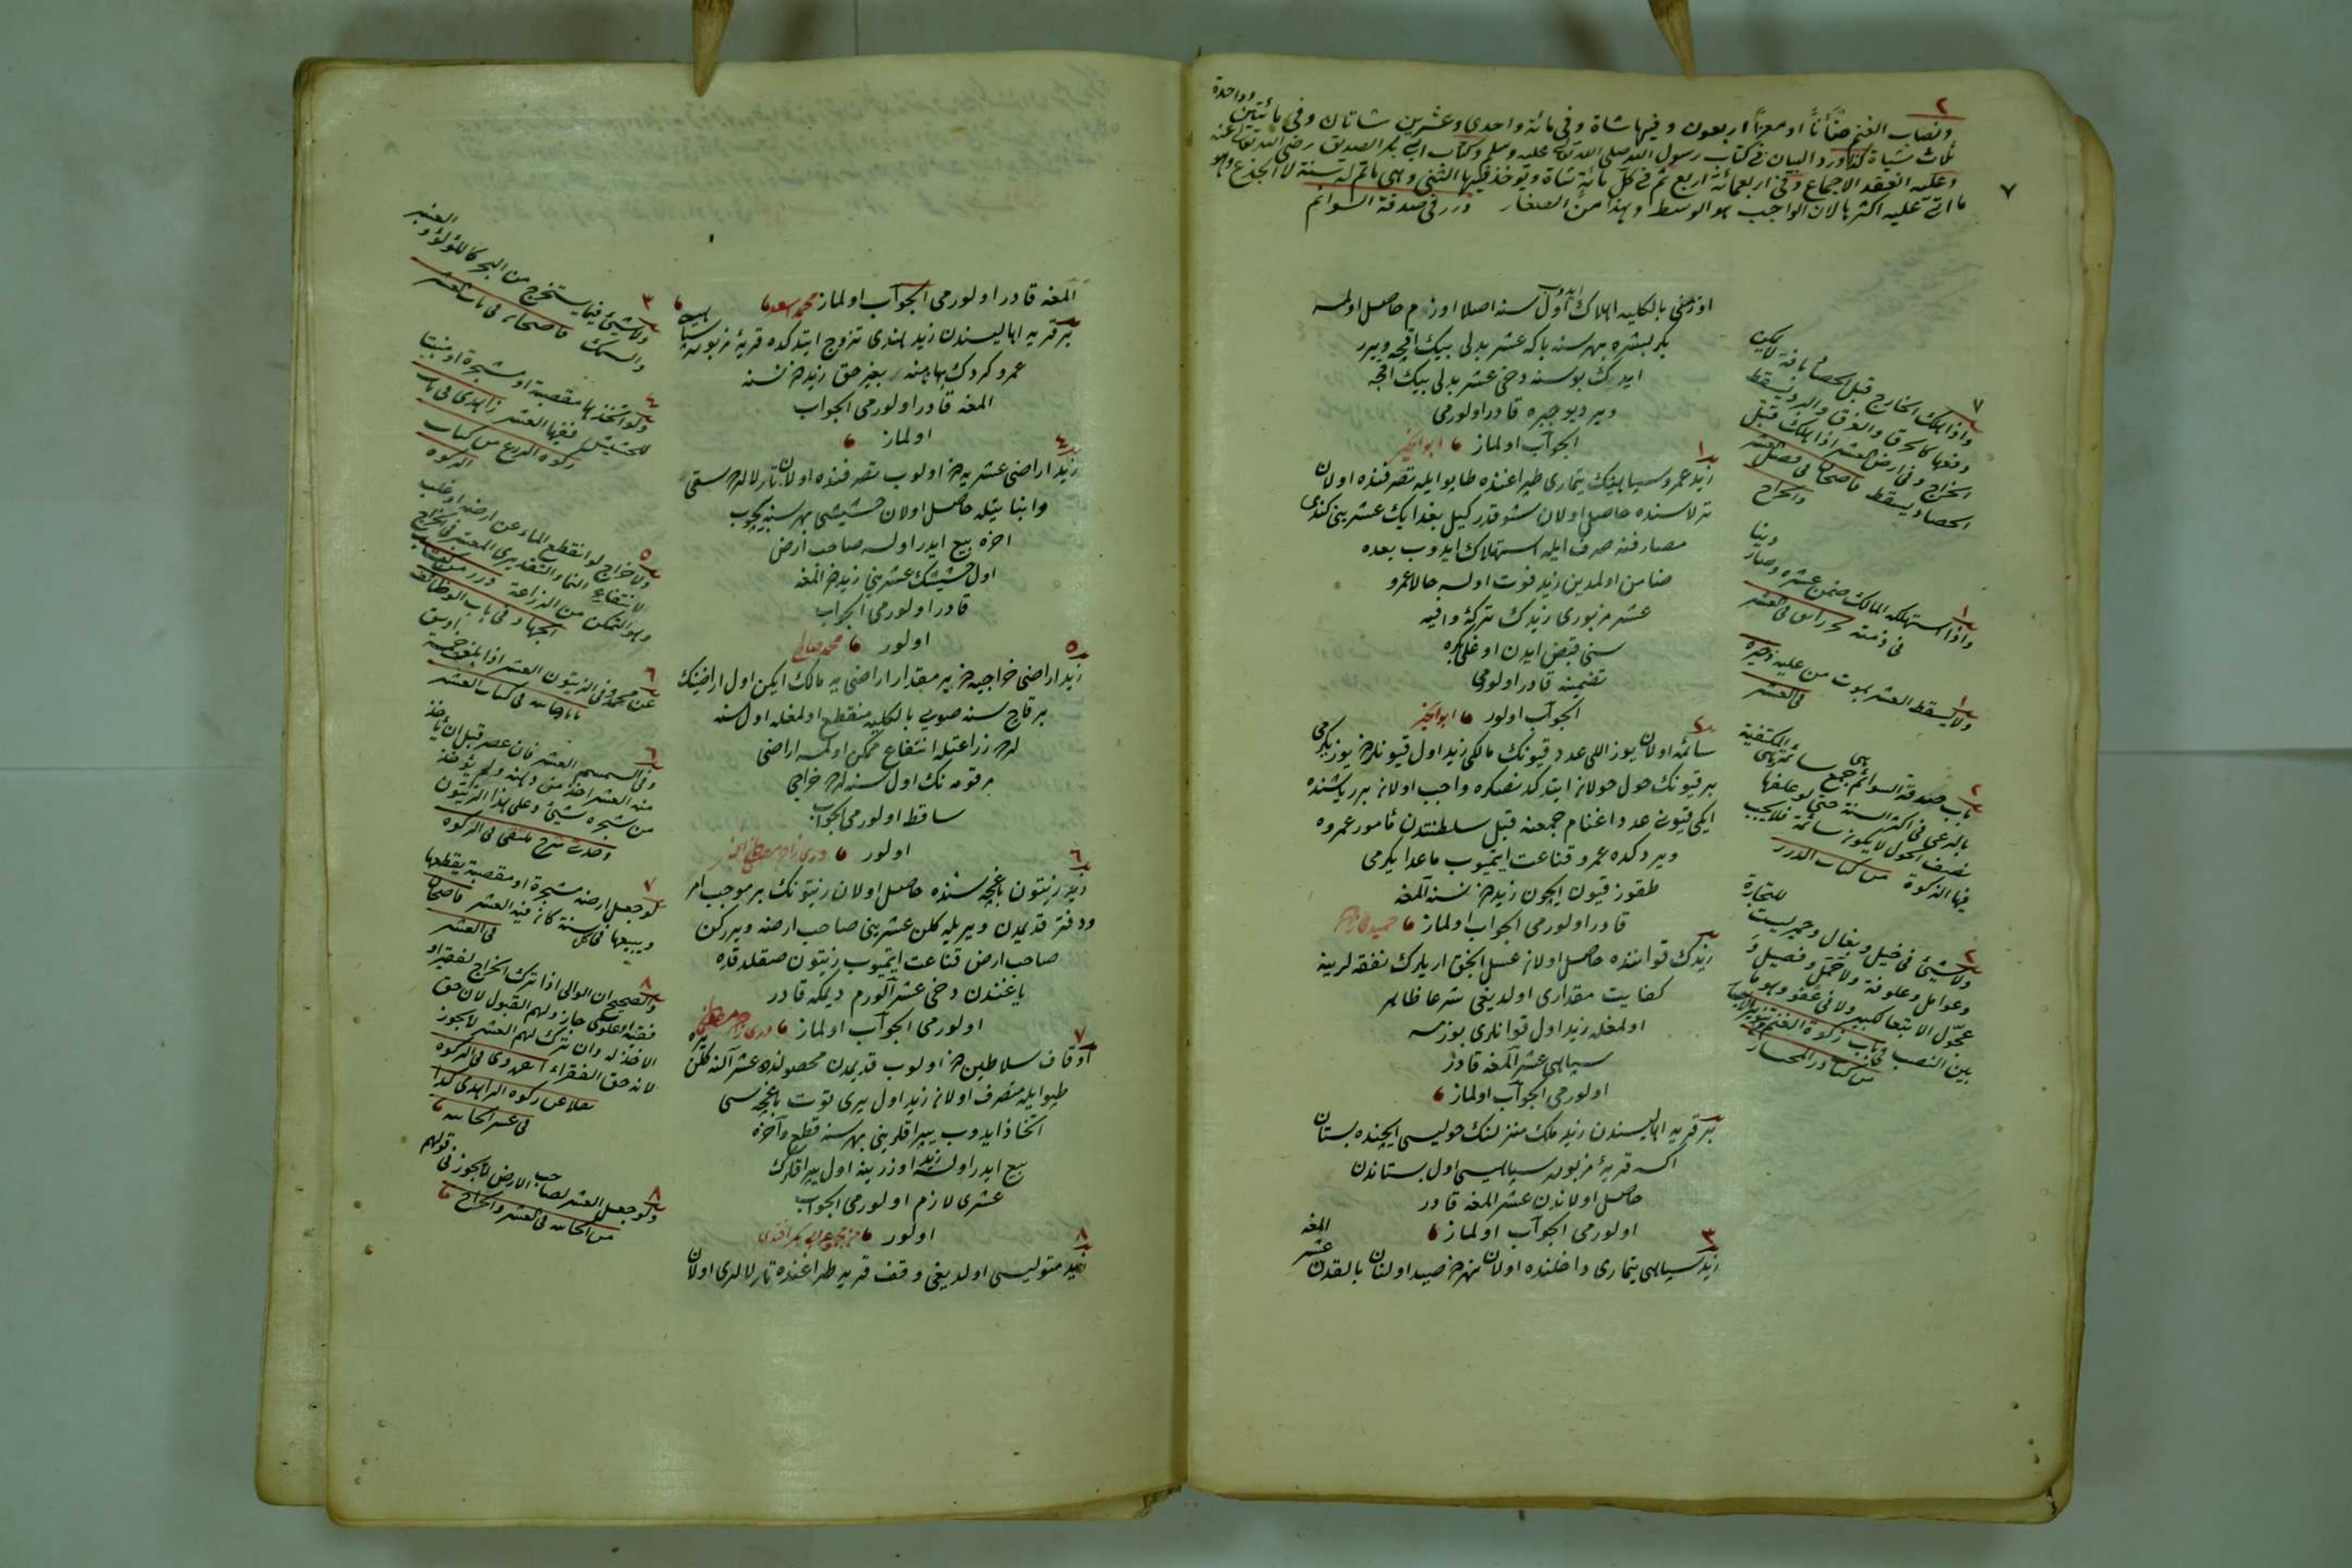 ٢
ونصاب الغنم ضأنا او معزا اربعون وفيها شاة وفى مائة واحدى وعشرين شاتان وفى مائتين وواحدة
ثلث شياة كذا ورد البيان فى كتاب رسول الله صلى الله تعالى عليه وسلم وكتاب ابى بكر الصديق رضى الله تعالى عنه
وعليه انعقد الاجماع وفى اربعمائة اربع ثم فى كل مائة شاة ويؤخذ فيها الثنى وهى ماتم له سنة لا الجذع وهو
ما اتى عليه اكثرها لان الواجب هو الوسط وهذا من الصغار درر فى صدقة السوائم
٧
اوزمنى بالكليه اهلاك ايدوب اول سنه اصلا اوزم حاصل اولمسه
بكر بشره هر سنه باكه عشر بدلى بيك اقچه ويرر
ايدك بو سنه دخى عشر بدلى بيك اقچه
ويرديو جبره قادر اولورمى
الجواب اولماز ابو الخير
١
زيد عمرو سپاهينك تيمارى طپراغنده طاپو ايله تصرفنده اولان
ترلاسنده حاصل اولان شو قدر كيل بغدايك عشرينى كندى
مصارفنه صرف ايله استهلاك ايدوب بعده
ضامن اولمدين زيد فوت اولسه حالا عمرو
عشر مزبورى زيدك تركۀ وافيه
سنى قبض ايدن اوغلى بكره
تضمينه قادر اولورمى
الجواب اولور ابو الخير
٢
سائمه اولان يوز اللى عدد قيونك مالكى زيد اول قيونلردن يوز يكرمى
بر قيونك حول حولان ايتدكده فقيره واجب اولان برر ياشنده
ايكى قيونى عدد اغنام جمعنه قبل سلطنتدن مأمور عمروه
ويردكده عمرو قناعت ايتميوب ماعدا يكرمى
طقوز قيون ايچون زيددن نسنه آلمغه
قادر اولورمى الجواب اولماز
زيدك قواننده حاصل اولان عسل انجق اريلرك نفقه لرينه
كفايت مقدارى اولديغى شرعا ظاهر
اولمغله زيد اول قوانلرى بوزمسه
سپاهى عشر آلمغه قادر
اولورمى الجواب اولماز
بر قريه اهاليسندن زيد ملك منزلنك حوليسى ايچنده بستان
اكسه قريۀ مزبوره سپاهيسى اول بستاندن
حاصل اولاندن عشر المغه قادر
اولورمى الجواب اولماز
٣
زيد سپاهى تيمارى داخلنده اولان نهردن صيد اولنان بالقدن عشر المغه
٧
واذا هلك الخارج قبل الحصاد بآفة لا يمكن
دفعها كالحرق والغرق والبرد يسقط
الخراج وفى ارض العشر اذا هلك قبل
الحصاد يسقط قاضيخان فى فصل العشر
والخراج
١
واذا استهلكه المالك ضمن عشره وصار دينا
فى ذمته بحر رائق فى العشر
١
ولا يسقط العشر بموت من عليه ذخيره
فى العشر
٢
باب صدقة السوائم جمع سائمة هى المكتفية
بالرعى فى اكثر السنة حتى لو علفها
نصف الحول لا يكون سائمة فلا يجب
فيها الزكوة من كتاب الدرر
٢
ولا شىء فى خيل وبغال وحمير ليست للتجارة
وعوامل وعلوفة ولا حمل وفصيل و
عجول الا تبعا لكبير ولا فى عفو وهو ما
بين النصب فى باب زكوة الغنم تنوير الابصار
المغه قادر اولورمى الجواب اولماز محمد اسعد
بر قريه اهاليسندن زيد هندى تزوج ايتدكده قريۀ مزبوره سپاهيسى
عمرو كردك بهانه سنه بغير حق زيددن نسنه
المغه قادر اولورمى الجواب
اولماز
٤
زيد اراضى عشريه دن اولوب تصرفنده اولان ترلالرى سقى
وانباتيله حاصل اولان حشيشى هر سنه بيچوب
اخره بيع ايدر اولسه صاحب ارض
اول حشيشك عشرينى زيددن المغه
قادر اولورمى الجواب
اولور
٥
زيد اراضى خراجيه دن بر مقدار اراضى يه مالك ايكن اول اراضينك
بر قاچ سنه صويى بالكليه منقطع اولمغله اول سنه
لرده زراعتله انتفاع ممكن اولمسه اراضى
مرقومه نك اول سنه لرده خراجى
ساقط اولورمى الجواب
اولور
٦
زيد زيتون باغچه سنده حاصل اولان زيتونك بر موجب امر
ودفتر قديمدن ويريله كلن عشرينى صاحب ارضه ويرركن
صاحب ارض قناعت ايتميوب زيتون صقلدقده
ياغندن دخى عشر آلورم ديمكه قادر
اولورمى الجواب اولماز
٧
اوقاف سلاطين دن اولوب قديمدن محصولنده عشر آلنه كلن يره
طپو ايله متصرف اولان زيد اول يرى توت باغچه سى
اتخاذ ايدوب يپراقلرينى هر سنه قطع وآخره
بيع ايدر اولسه زيد اوزرينه اول يپراقلرك
عشرى لازم اولورمى الجواب
اولور
٨
زيد متوليسى اولديغى وقف قريه طپراغنده تارلالرى اولان
٣
ولا شىء فيما يستخرج من البحر كاللؤلؤ والعنبر
والسمك قاضيخان فى باب العشر
٤
ولو اتخذها مقصبة او مشجرة او منبتا
للحشيش ففيها العشر زاهدى فى باب
زكوة الزرع من كتاب
الزكوة
٥
ولا خراج لو انقطع الماء عن ارضه او غلب
لانتفاع النماء التقديرى المعتبر فى الخراج
وهو التمكن من الزراعة درر من كتاب
الجهاد فى باب الوظائف
٦
عن محمد وفى الزيتون العشر اذا بلغ خمسة اوسق
فى كتاب العشر
٦
وفى السمسم العشر فان عصر قبل ان يأخذ
منه العشر اخذ من دهنه ولم يؤخذ
من شجره شىء وعلى هذا الزيتون
وحدت شرح ملتقى فى الزكوه
٧
لو جعل ارضه مشجرة او مقصبة يقطعها
ويبيعها فى كل سنة كان فيه العشر قاضيخان
فى العشر
٨
والصحيح ان الوالى اذا ترك الخراج لفقير او
فقيه او علوى جاز ولهم القبول لان حق
الاخذ له وان ترك لهم العشر لا يجوز
لانه حق الفقراء
٨
ولو جعل العشر لصاحب الارض لا يجوز فى قولهم
فى العشر والخراج